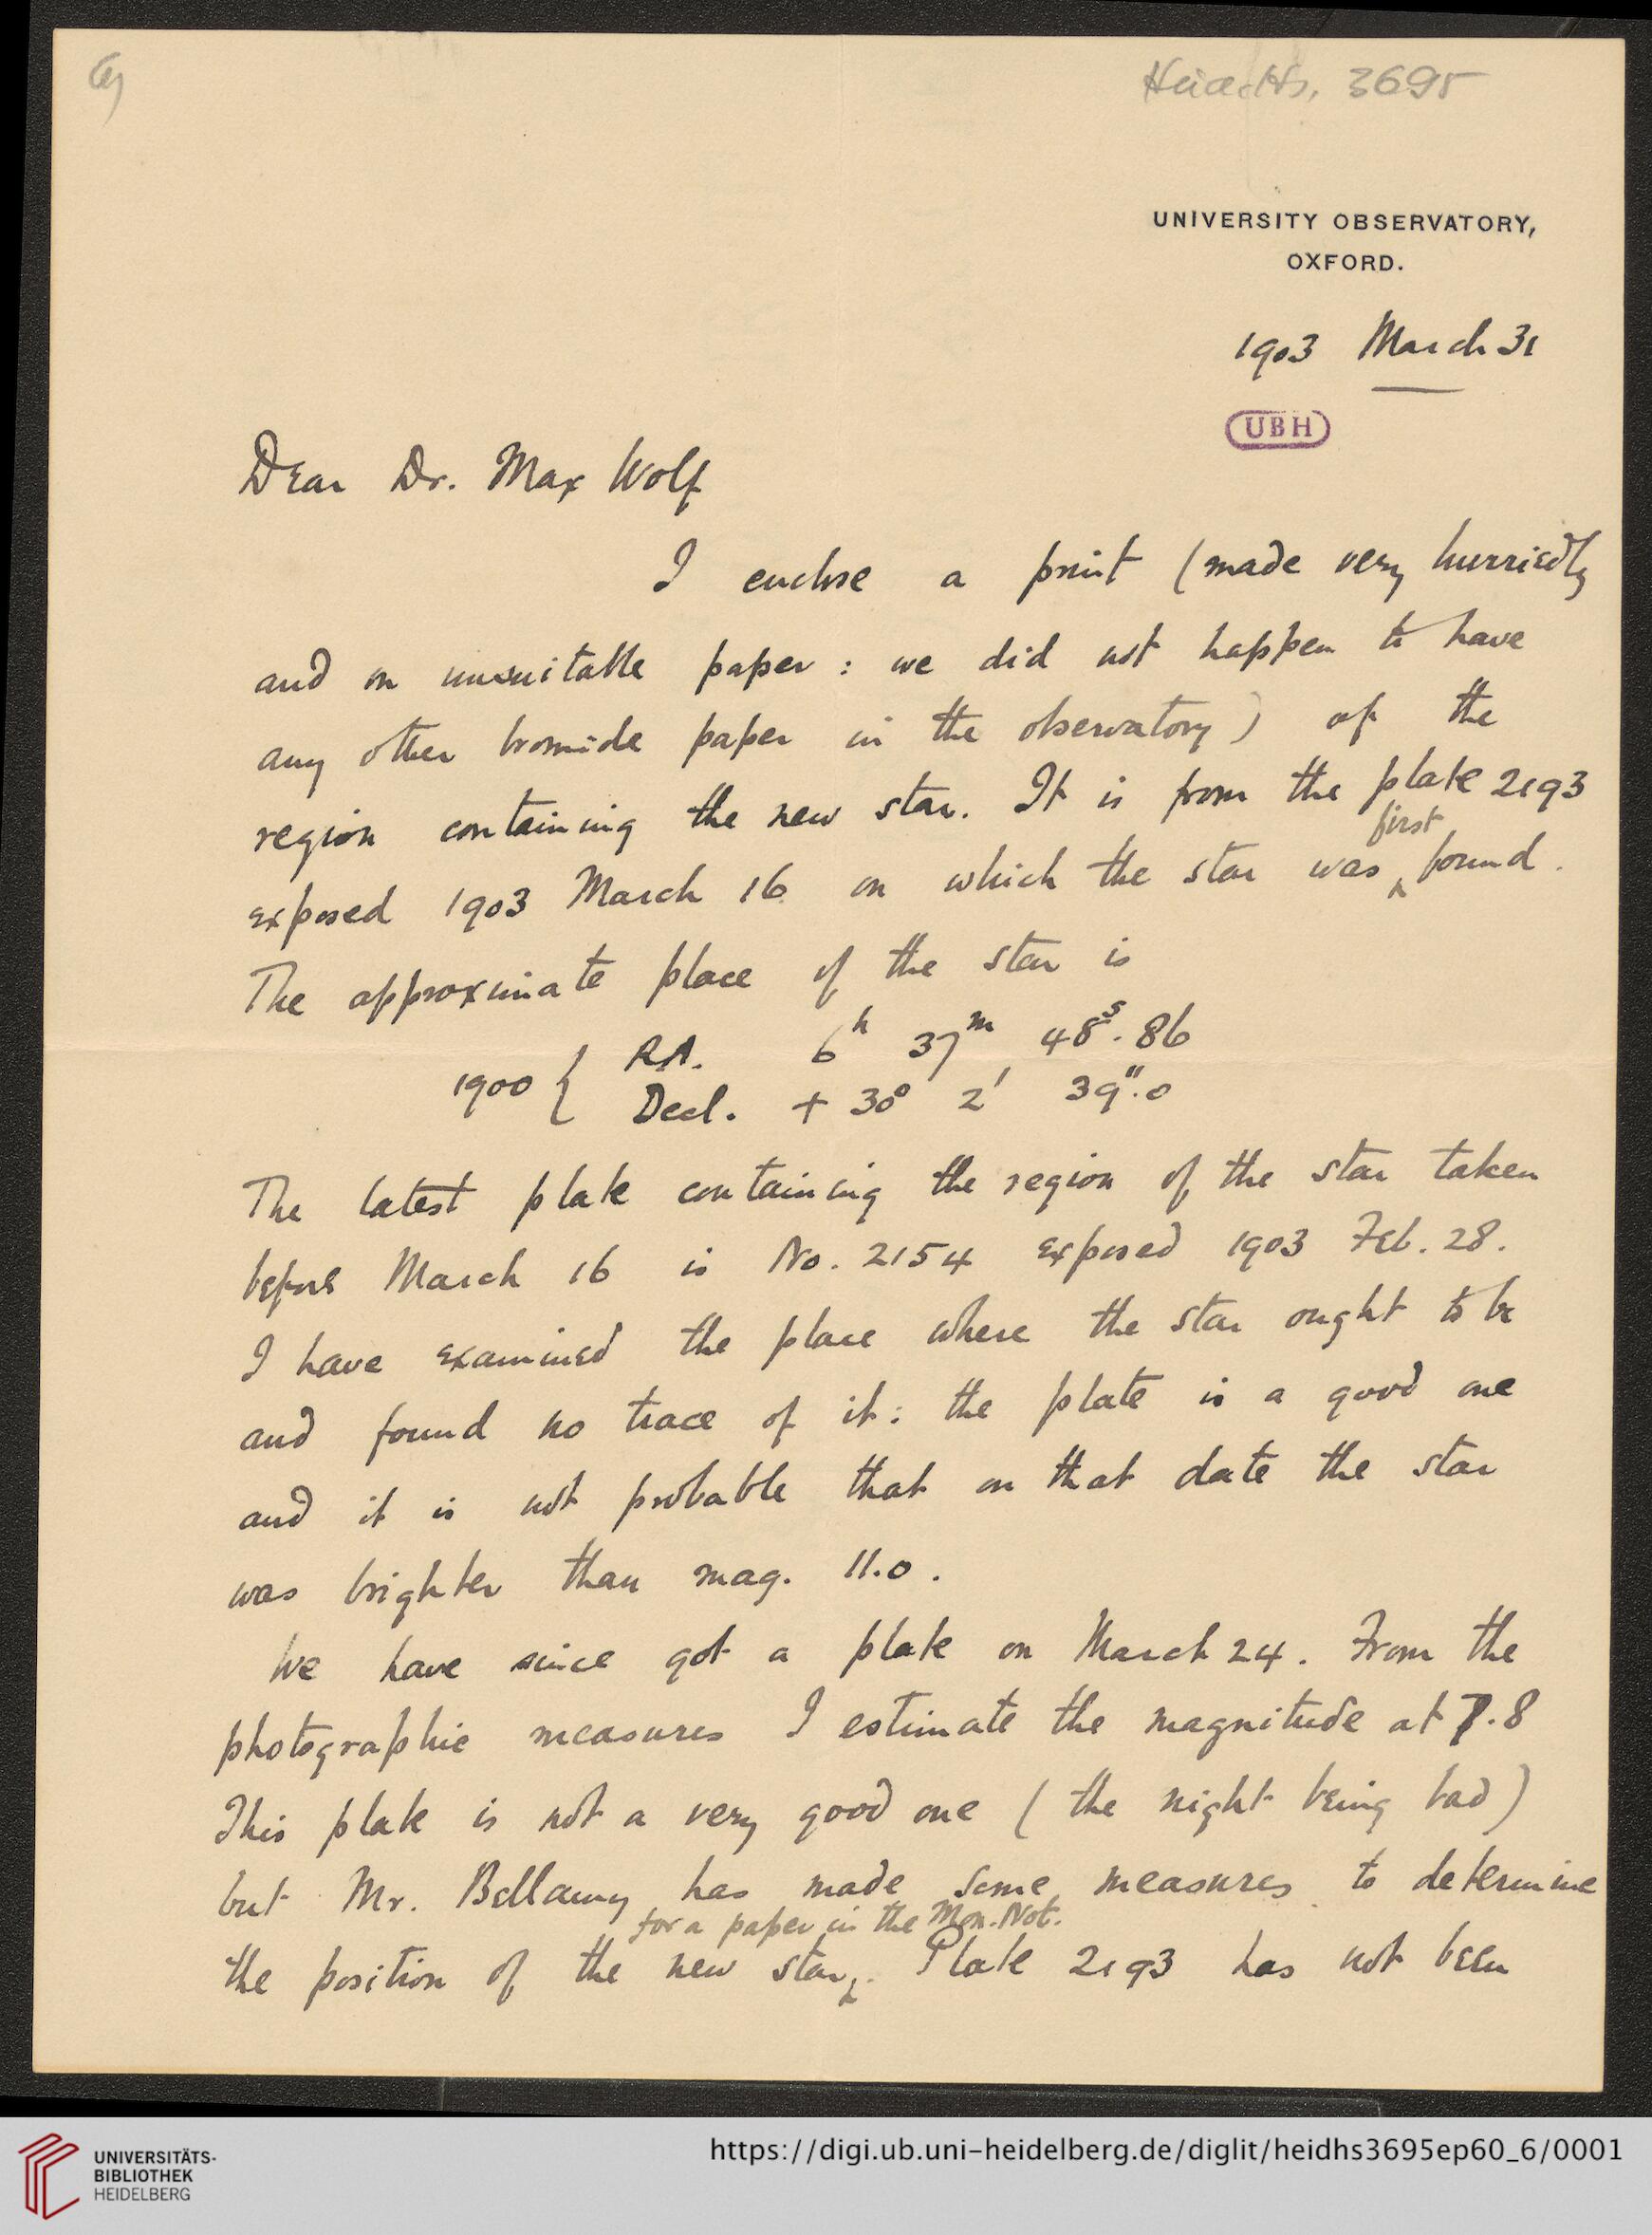 6)
Heid. Hs. 3695
UNIVERSITY OBSERVATORY,
OXFORD.
1903 March 31
UBH
Dear Dr. Max Wolf
I enclose a print (made very hurriedly
and on unsuitable paper: we did not happen to have
any other bromide paper in the observatory) of the
region containing the new star. It is from the plate 2193
first
exposed 1903 March 16 on which the star was ‸ found.
The approximate place of the star is
1900 { RA. 6h 37m 48s.86
Decl. + 30° 2' 39".0
The latest plate containing the region of the star taken
before March 16 is No. 2154 exposed 1903 Feb. 28.
I have examined the place where the star ought to be
and found no trace of it: the plate is a good one
and it is not probable that on that date the star
was brighter than mag. 11.0.
We have since got a plate on March 24. From the
photographic measures I estimate the magnitude at 7.8
This plate is not a very good one (the night being bad)
but Mr. Bellamy has made some measures to determine
for a paper in the Mon. Not.
the position of the new star‸. Plate 2193 has not been
UNIVERSITÄTS-
BIBLIOTHEK
HEIDELBERG
https://digi.ub.uni-heidelberg.de/diglit/heidhs3695ep60_6/0001